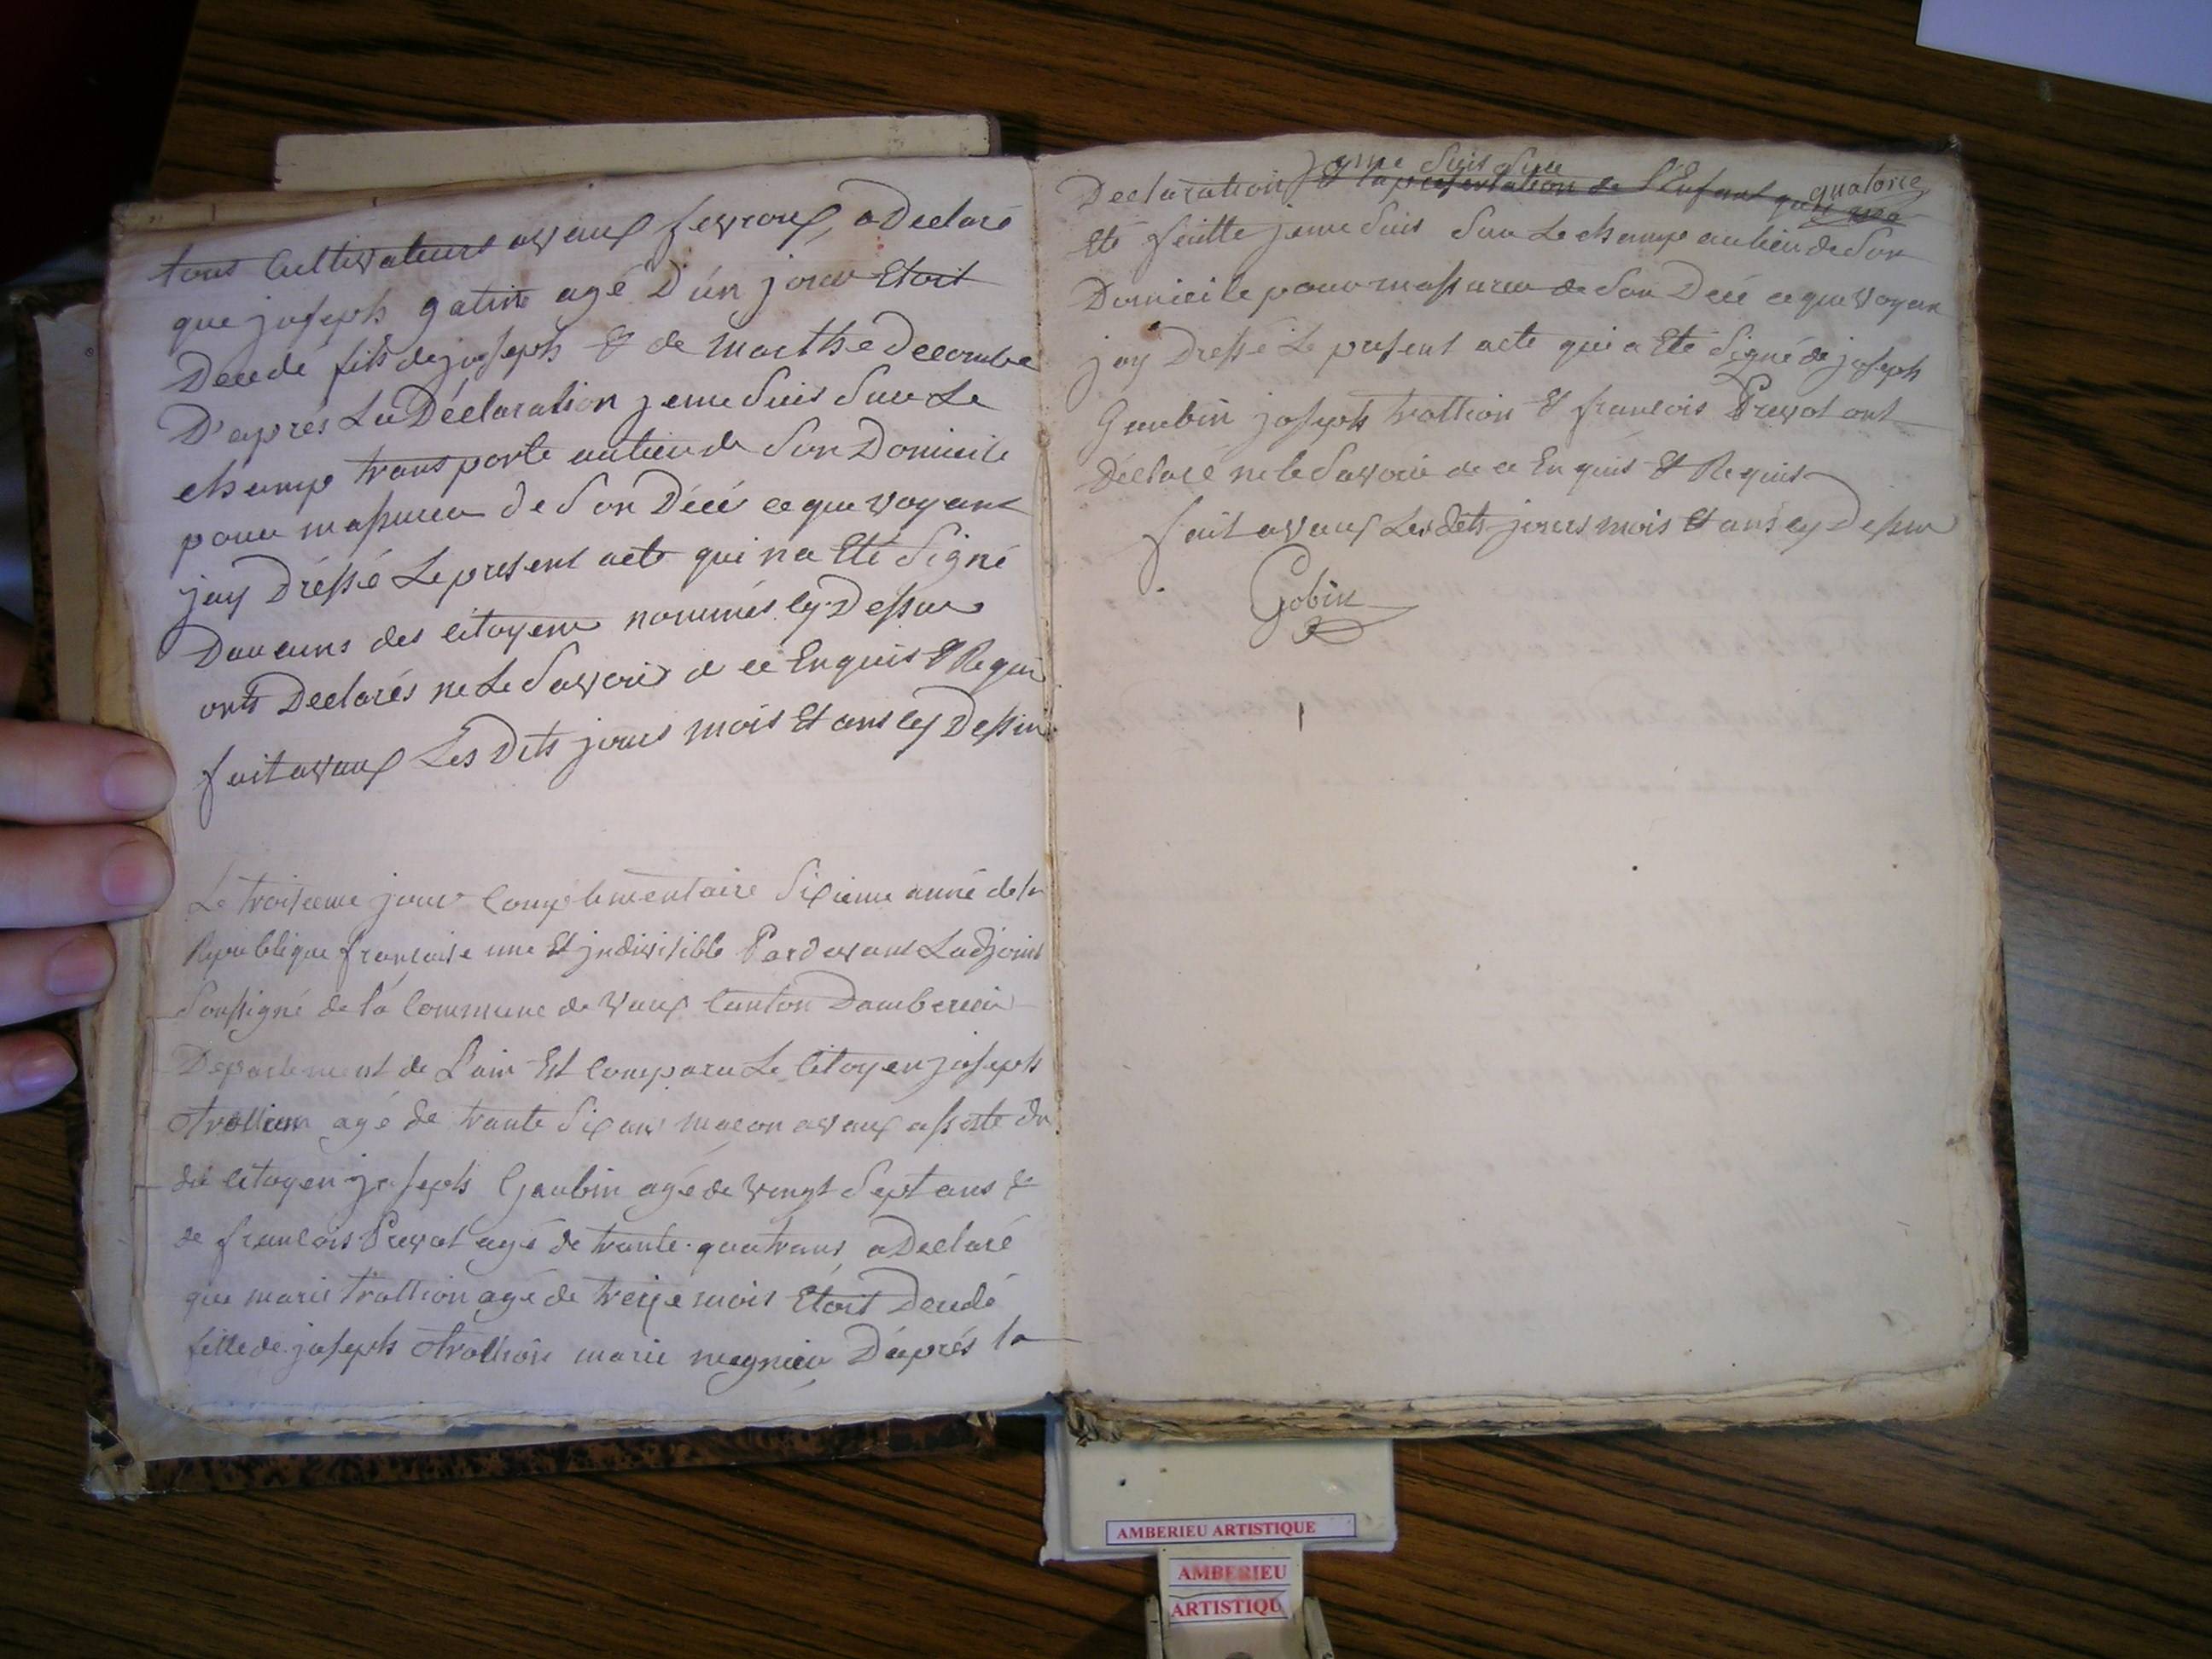 tous Cultivateurs avaux fevroux, a Declaré
que joseph gatin agé D'un jour Etoit
Decedé fils de joseph & de marthe Decombe
D'aprés La Déclaration jeme Suis Sur Le
champ transporté aulieu de Son Domicile
pour massurer de Son Décé ce que voyant
jay Dréssé Le present acte qui na Eté Signé
Daucuns des Citoyens nommés Cy Dessus
onts Declarés ne Le Savoir de ce Enquis & Requi
fait avaux Les Dits jours mois Et ans Cy Dessus
Le troisieme jour Complementaire Sixieme anné de la
Republique francaise une Et jndivisible Pardevant Ladjoint
Soussigné de la Commune de Vaux Canton Damberieu
Departement de Lain Est Comparu Le Citoyen joseph
trollion agé de trante Six ans macon avaux assisté du
du Citoyen joseph Gaubin agé de vingt Sept ans &
de francois Prevot agé de trante quatrans, a Declaré
que marie trollion agé de treize mois Etoit Decedé
fille de joseph trollion marie megnieu D'aprés la
jeme Suis Sur
quatorze
Declaration & la presentation de l'Enfant qui ma
Eté faitte jeme Suis Sur Le champ aulieu de Son
Domicile pour massurer de Son Décé ce que voyan
jay Dressé Le present acte qui a Eté Signé de joseph
Gaubin joseph trollion & francois Prevot ont
Déclaré ne le Savoir de ce Enquis & Requis
fait avaux Les dits jours mois Et ans Cy Dessus
Gobin
AMBERIEU ARTISTIQUE
AMBERIEU
ARTISTIQU